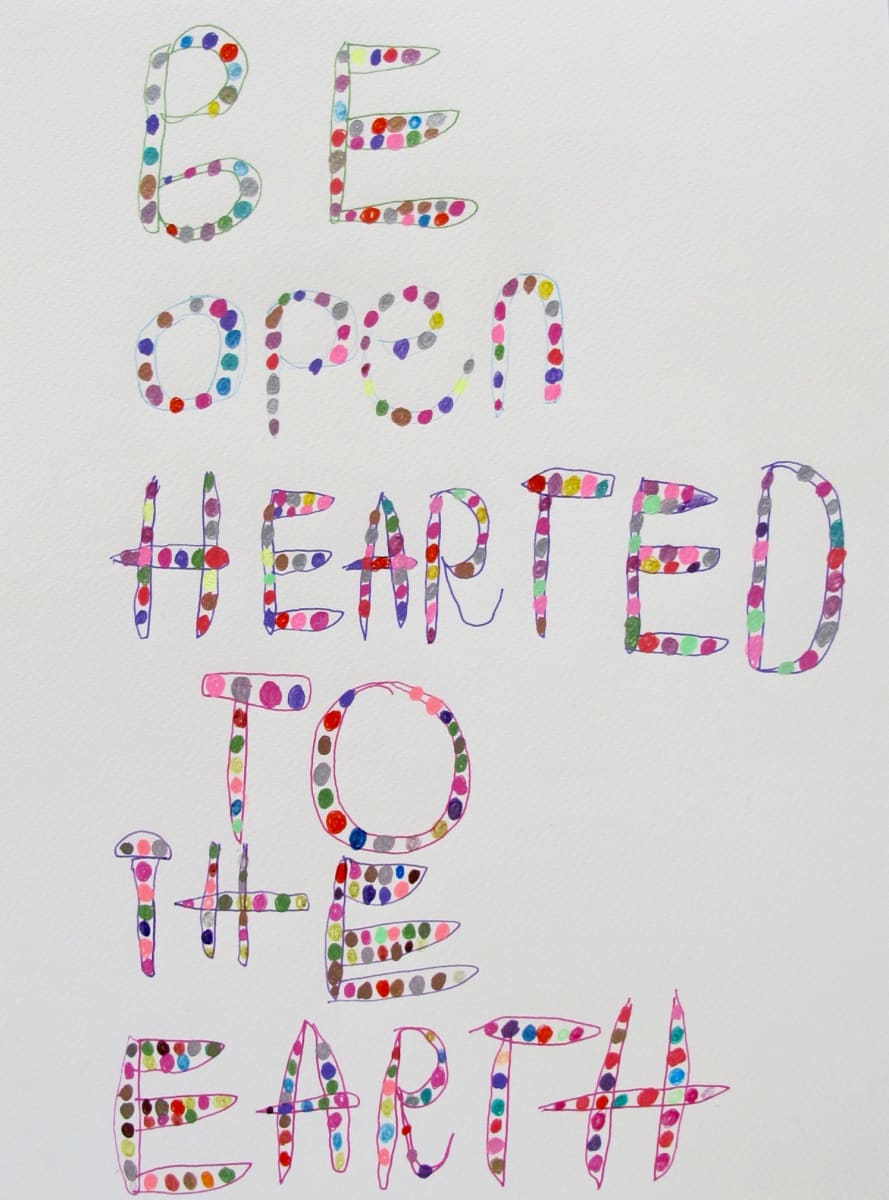 BE
open
HEARTED
TO
THE
EARTH